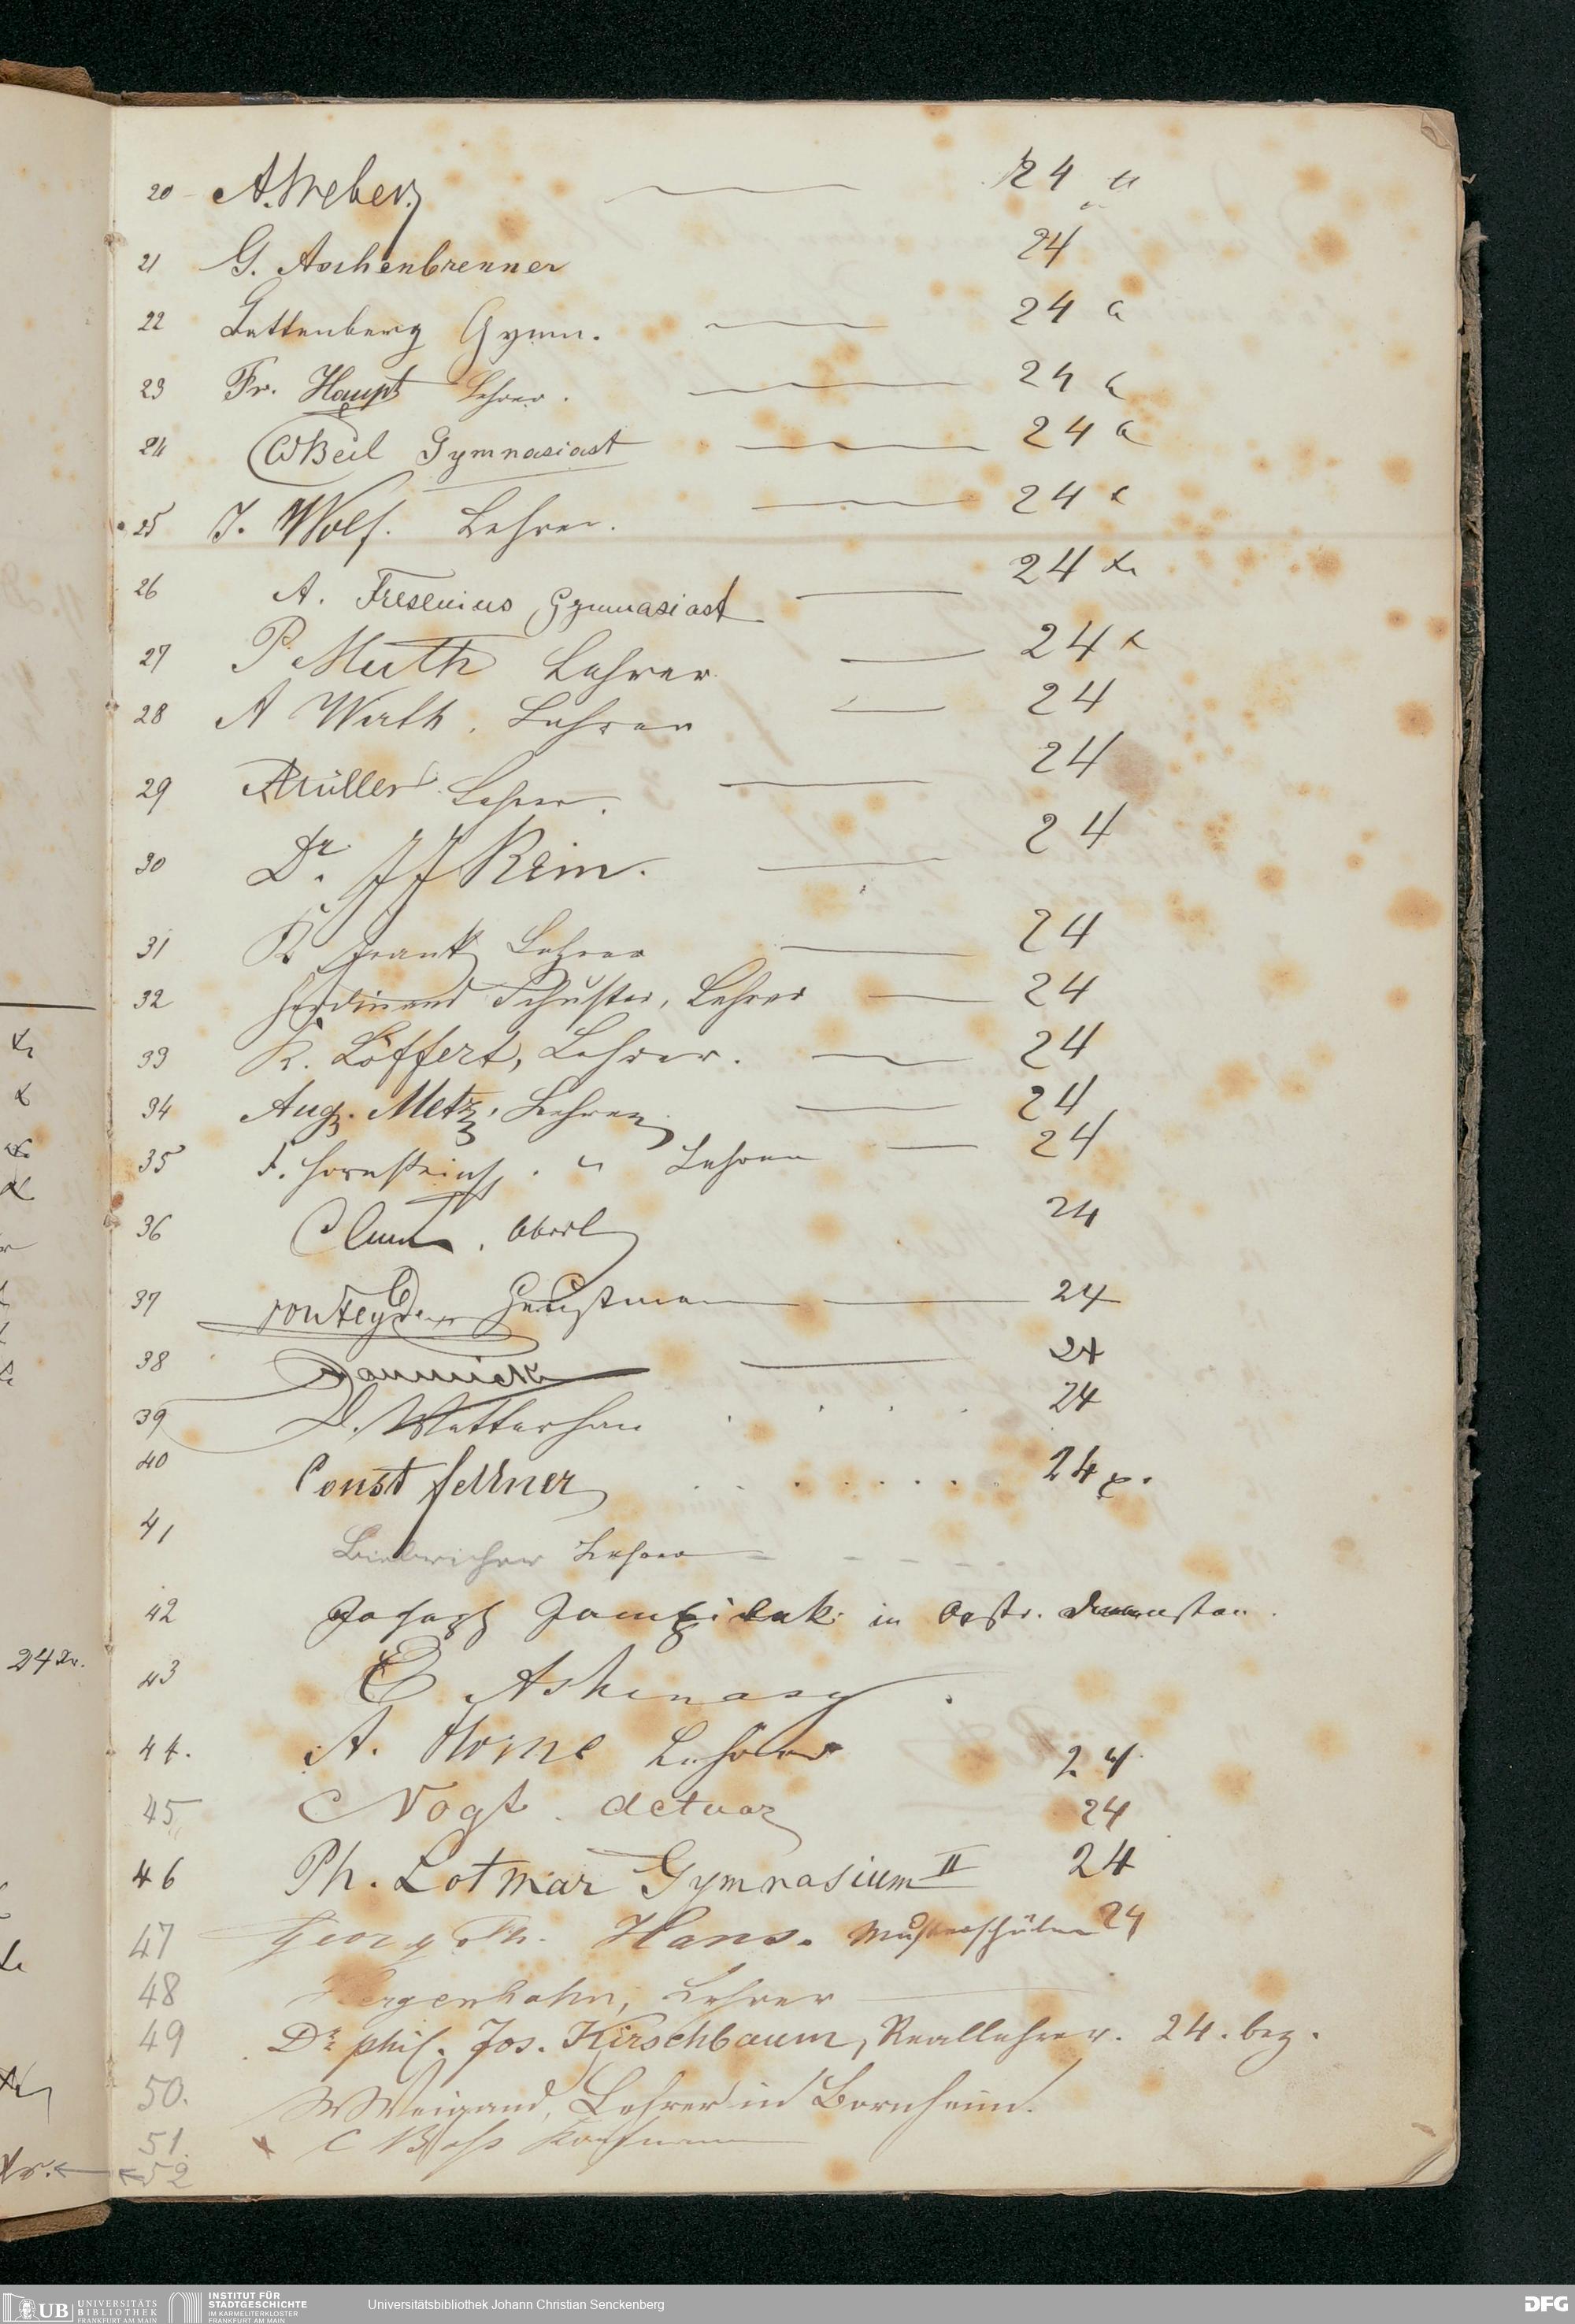 20 A. Weber 24 "
21 G. Aschenbrenner 24
22 Lattenberg Gymn. 24
23 Fr. Haupt Lehrer. 24
24 Beil Gymnasiast 24
25 J. Wolf. Lehrer. 24
26 A. Fresenius Gymnasiast 24 xr
27 P. Muth Lehrer 24
28 A Werth. Lehrer 24
29 Müller Lehrer. 24
30 Dr. J J Rein. 24
31 K Frank Lehrer 24
32 Ferdinand Schuster, Lehrer 24
33 K. Löffert, Lehrer. 24
34 Aug. Metz, Lehrer 24
35 F. Hornstein Lehrer 24
36 24
37 von Heyden Hauptmann 24
38 Dannück 24
39 D. Wetterhan 24
40 Const Fellner 24 x.
41 Biebricher Lehrer
42 Joseph in Östr. Diensten.
43 E Askenasy.
44. A. Horne Lehrer 24
45 C Vogt. Actuar 24
46 Ph. Lotmar Gymnasium II 24
47 Georg Th. Hans. Musterschüler 24
48 Hergenhahn, Lehrer
49 Dr. phil. Jos. Kirschbaum, Reallehrer. 24. bez.
50. W Weigand, Lehrer in Bornheim.
51. C Kaufmann
52
24 xr.
UB UNIVERSITÄTS
BIBLIOTHEK
FRANKFURT AM MAIN
INSTITUT FÜR
STADTGESCHICHTE
IM KARMELITERKLOSTER
FRANKFURT AM MAIN
Universitätsbibliothek Johann Christian Senckenberg
DFG